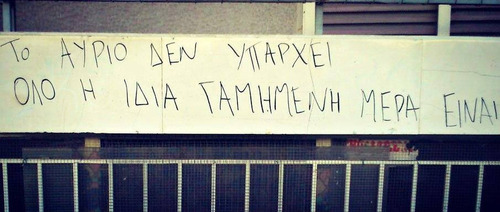 Το ΑΥΡΙΟ ΔΕΝ ΥΠΑΡΧΕΙ
ΟΛΟ Η ΙΔΙΑ ΓΑΜΗΜΕΝΗ ΜΕΡΑ ΕΙΝΑΙ